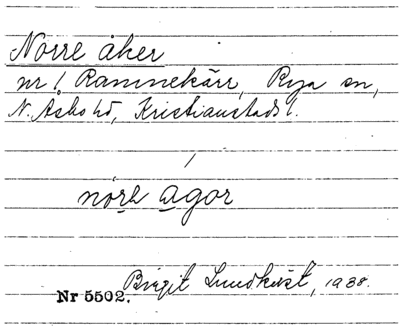 Norre åker
nr 1 Ramnekärr, Rya sn,
N. Åsbo hd, Kristianstads l.
nörh agor
Birgit Lundkvist, 1938.
Nr 5502.